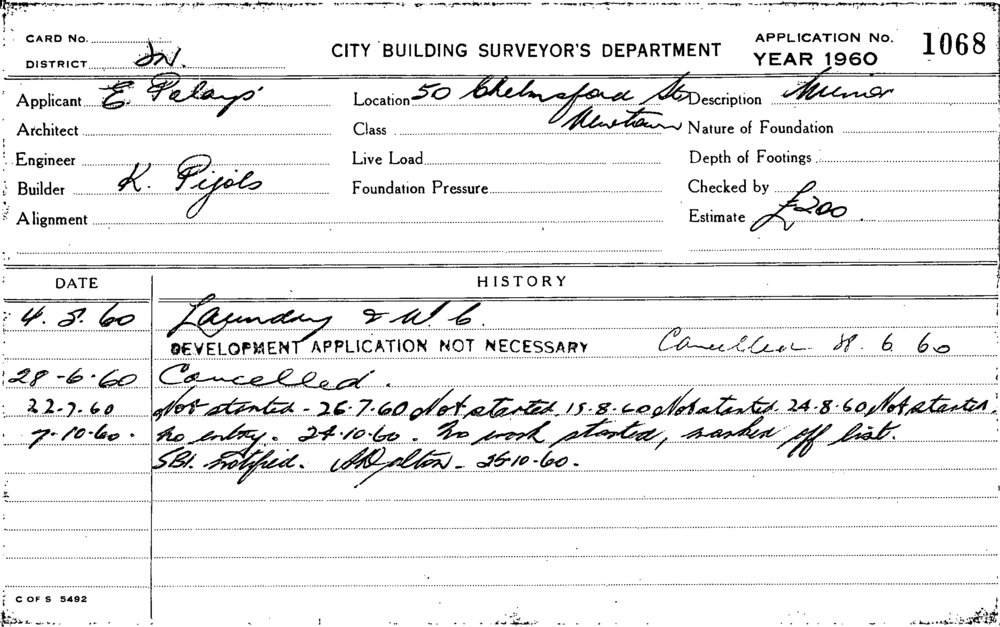 CARD No.
DISTRICT
CITY BUILDING SURVEYOR'S DEPARTMENT
APPLICATION No. 1068
YEAR 1960
Applicant E
Location 50 Chelmsford St
Newtown
Description Minor
Architect
Class
Nature of Foundation
Engineer
Live Load
Depth of Footings
Builder K. Pijols
Foundation Pressure
Checked by
Alignment
Estimate £200
DATE HISTORY
4.5.60 Laundry & W.C.
DEVELOPMENT APPLICATION NOT NECESSARY Cancelled 28 6 60
28-6-60 Cancelled.
22-7-60 Not started - 26-7-60 Not started 15-8-60 Not started 24-8-60 Not started
7-10-60. No entry. 24-10-60. No work started, marked off list.
SBI. notified. 25-10-60.
C OF S 5492